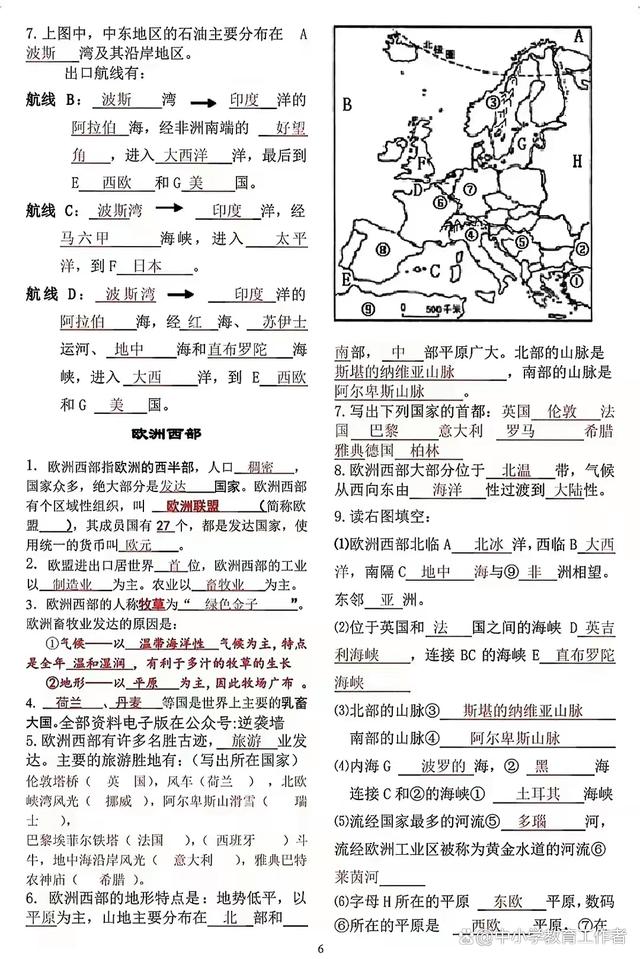 7. 上图中，中东地区的石油主要分布在 A
波斯 湾及其沿岸地区。
出口航线有：
航线 B： 波斯 湾 → 印度 洋的
阿拉伯 海，经非洲南端的 好望
角 ，进入 大西洋 洋，最后到
E 西欧 和 G 美 国。
航线 C： 波斯湾 → 印度 洋，经
马六甲 海峡，进入 太平
洋，到 F 日本 。
航线 D： 波斯湾 → 印度 洋的
阿拉伯 海，经 红 海、 苏伊士
运河、 地中 海和直布罗陀 海
峡，进入 大西 洋，到 E 西欧
和 G 美 国。
欧洲西部
1. 欧洲西部指欧洲的西半部，人口 稠密 ，
国家众多，绝大部分是 发达 国家。欧洲西部
有个区域性组织，叫 欧洲联盟 （简称欧
盟 ），其成员国有 27 个，都是发达国家，使
用统一的货币叫 欧元 。
2. 欧盟进出口居世界 首 位，欧洲西部的工业
以 制造业 为主。农业以 畜牧业 为主。
3. 欧洲西部的人称牧草为“ 绿色金子 ”。
欧洲畜牧业发达的原因是：
①气候——以 温带海洋性 气候为主，特点
是全年 温和湿润 ，有利于多汁的牧草的生长
②地形——以 平原 为主，因此牧场广布 。
4. 荷兰 、 丹麦 等国是世界上主要的乳畜
大国。全部资料电子版在公众号:逆袭墙
5. 欧洲西部有许多名胜古迹， 旅游 业发
达。主要的旅游胜地有：（写出所在国家）
伦敦塔桥（ 英 国），风车（荷兰 ） ，北欧
峡湾风光（ 挪威 ），阿尔卑斯山滑雪（ 瑞
士 ），
巴黎埃菲尔铁塔（ 法国 ），（ 西班牙 ）斗
牛，地中海沿岸风光（ 意大利 ），雅典巴特
农神庙（ 希腊 ）。
6. 欧洲西部的地形特点是：地势低平，以
平原为主，山地主要分布在 北 部和
A
北极圈
B
③
G
H
F
D
⑦
⑥
④
⑤
②
⑧
C
E
①
⑨
0 500千米
南部， 中 部平原广大。北部的山脉是
斯堪的纳维亚山脉 ，南部的山脉是
阿尔卑斯山脉 。
7. 写出下列国家的首都：英国 伦敦 法
国 巴黎 意大利 罗马 希腊
雅典德国 柏林
8. 欧洲西部大部分位于 北温 带，气候
从西向东由 海洋 性过渡到 大陆性。
9. 读右图填空：
⑴欧洲西部北临 A 北冰 洋，西临 B 大西
洋，南隔 C 地中 海与⑨ 非 洲相望。
东邻 亚 洲。
⑵位于英国和 法 国之间的海峡 D 英吉
利海峡 ，连接 BC 的海峡 E 直布罗陀
海峡
⑶北部的山脉③ 斯堪的纳维亚山脉
南部的山脉④ 阿尔卑斯山脉
⑷内海 G 波罗的 海，② 黑 海
连接 C 和②的海峡① 土耳其 海峡
⑸流经国家最多的河流⑤ 多瑙 河，
流经欧洲工业区被称为黄金水道的河流⑥
莱茵河
⑹字母 H 所在的平原 东欧 平原，数码
⑥所在的平原是 西欧 平原，⑦在
6
@中小学教育工作者